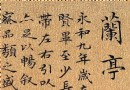 蘭亭
永和九年歲
賢畢至少長
帶左右引以
足以暢叙
察品類之盛